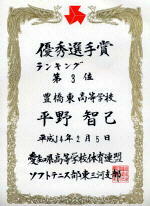 優秀選手賞
ランキング
第3位
豊橋東高等学校
平野智己
平成14年2月5日
愛知県高等学校体育連盟
ソフトテニス部東三河支部